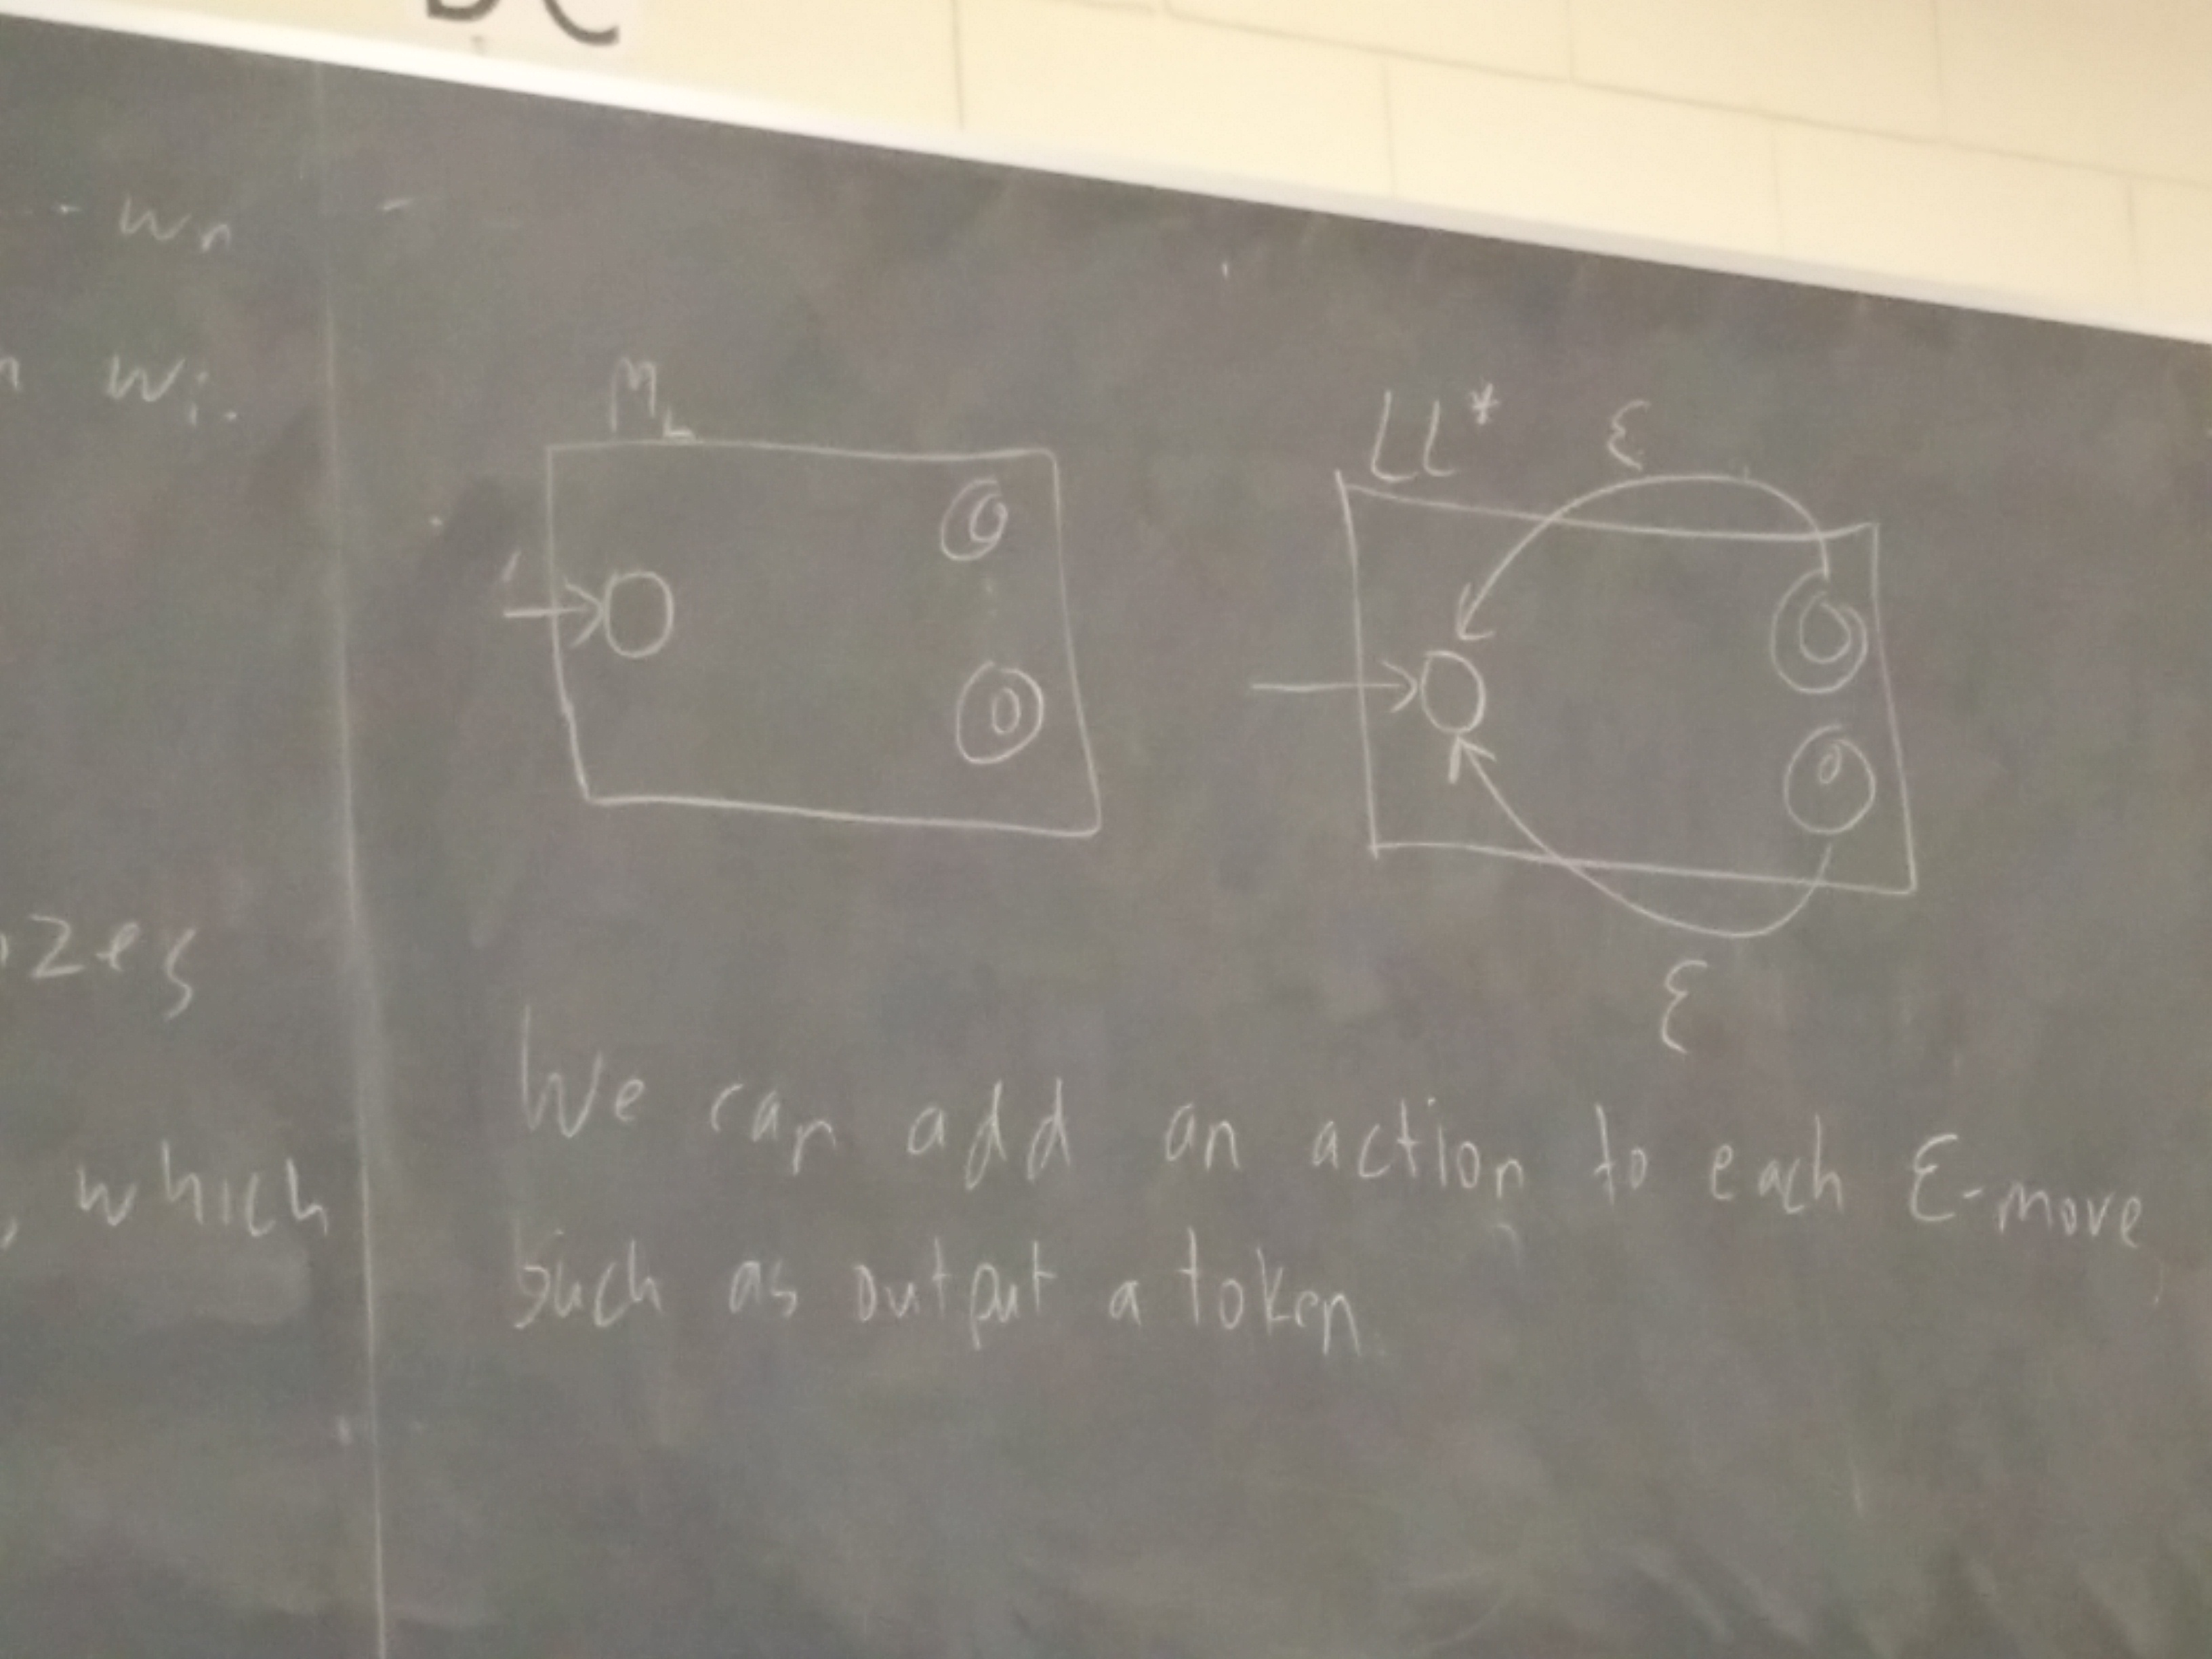 wn
wi.
which
ML
LL* ε
ε
We can add an action to each ε-move
such as output a token